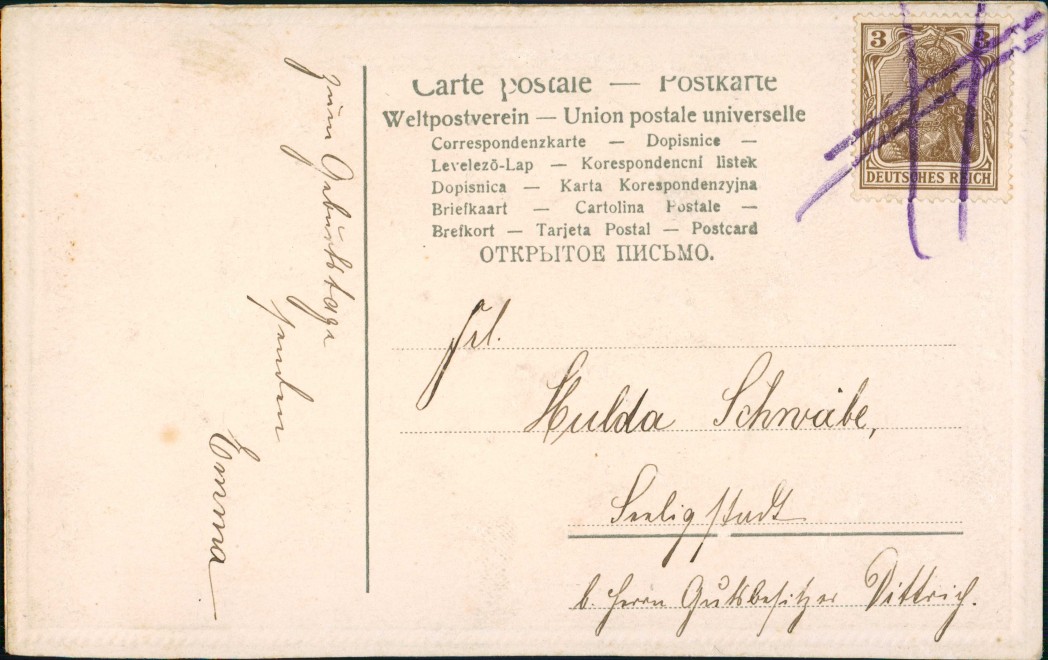 Carte postale — Postkarte
Weltpostverein — Union postale universelle
Correspondenzkarte — Dopisnice —
Levelező-Lap — Korespondencni listek
Dopisnica — Karta Korespondenzyjna
Briefkaart — Cartolina Postale —
Brefkort — Tarjeta Postal — Postcard
ОТКРЫТОЕ ПИСЬМО.
3 3
DEUTSCHES REICH
zum Geburtstage
senden
Emma
Frl.
Hulda Schwäbe,
Seeligstadt
b. Herrn Gutsbesitzer Dittrich.